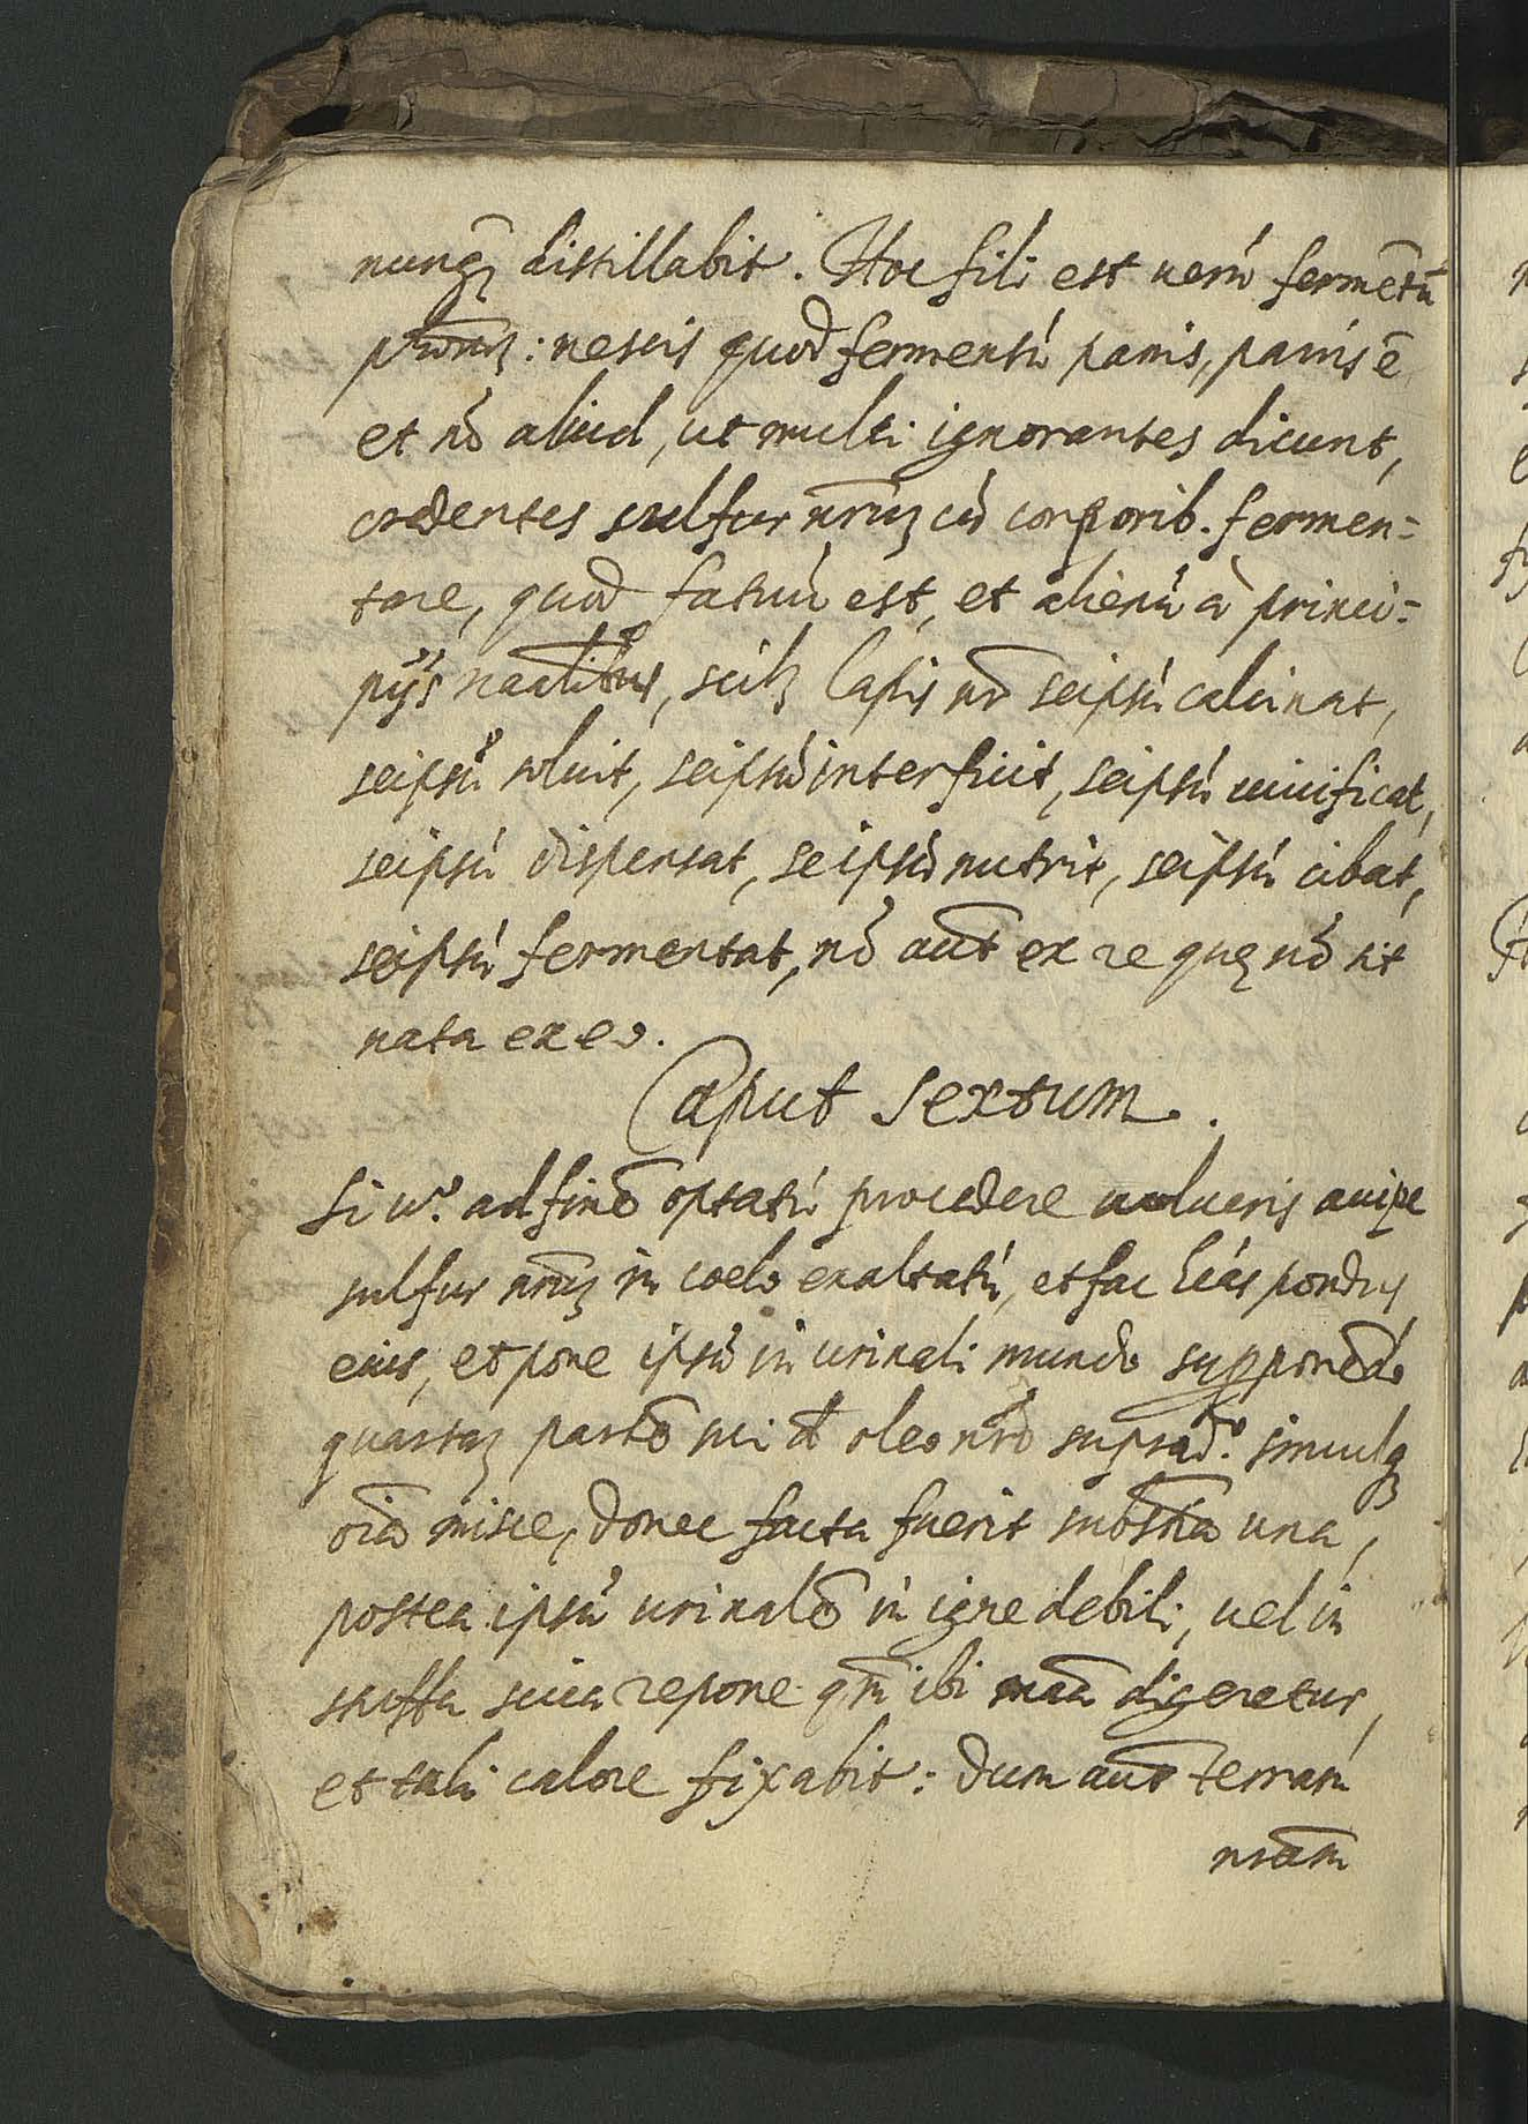 nunqȝ distillabit. Hoc fili est uerũ fermẽtũ
: nescis quod fermentũ panis, panis ẽ
et nõ aliud, ut multi ignorantes dicunt,
credentes sulfur nr̃uȝ cũ corporib. fermen=
tare, quod fatuũ est, et alienũ à princi=
pijs naãlibus, scilȝ lapis nr̃ seipsũ calcinat,
seipsũ soluit, seipsũ interficit, seipsũ uiuificat,
seipsũ dispensat, seipsũ nutrit, seipsũ cibat,
seipsũ fermentat, nõ aũt ex re quę nõ sit
nata ex eo.
Caput Sextum.
Si u.º ad finẽ optatũ procedere uolueris accipe
sulfur nr̃uȝ in coelo exaltatũ, et fac pondus
eius, et pone ipsũ in urinali mundo supponẽdo
quartaȝ partẽ sui oleo nr̃o supradº. simulqȝ
oĩa misce, donec facta fuerit substñia una,
postea ipsũ urinalẽ in igne debili, uel in
stuffa sicca repone qm̃ ibi maã digeretur,
et tali calore fixabit: dum aũt terram
nrãm